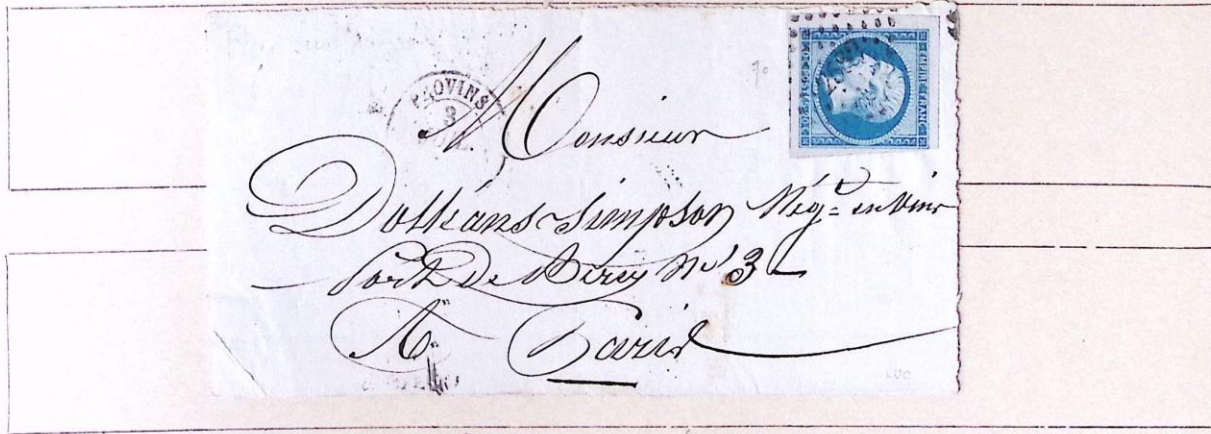 PROVINS
3
Monsieur
Dolléans-Simpson Még.t en vins
Port de Bercy N° 3
A Paris
EMPIRE FRANC